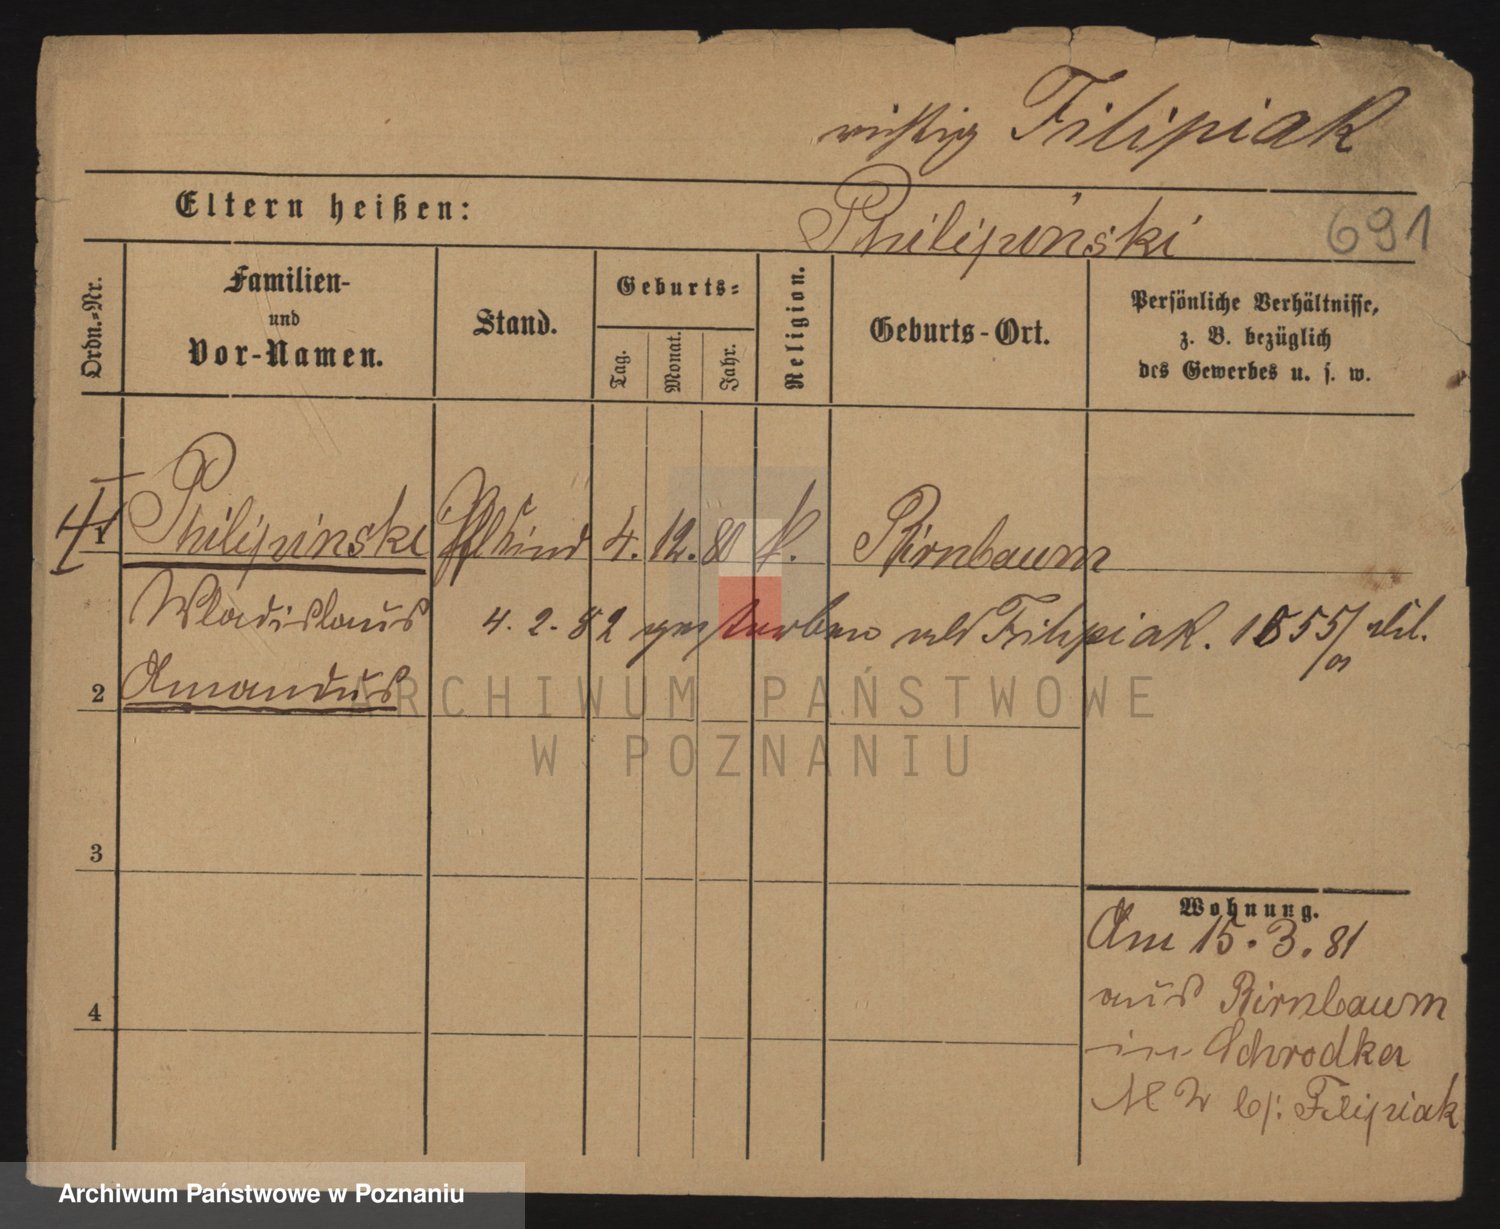 richtig Filipiak
Eltern heißen:
Philipinski
691
Ordn.-Nr.
Familien-
und
Vor-Namen.
Stand.
Geburts-
Tag.
Monat.
Jahr.
Religion.
Geburts-Ort.
Persönliche Verhältnisse,
z. B. bezüglich
des Gewerbes u. s. w.
1 Philipinski Pflkind 4. 12. 80 k. Birnbaum
Wladislaus 4. 2. 82 gestorben als Filipiak. 1855/
2 Amandus
3
Wohnung.
Am 15. 3. 81
aus Birnbaum
4
in Schrodka
b/: Filipiak
ARCHIWUM PAŃSTWOWE
W POZNANIU
Archiwum Państwowe w Poznaniu